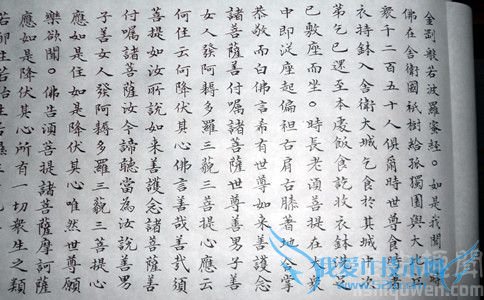 金剛般若波羅蜜經。如是我聞
佛在舍衛國祇樹給孤獨園與大
衆千二百五十人俱爾時世尊食
衣持鉢入舍衛大城乞食於其城中
第乞已還至本處飯食訖收衣鉢
已敷座而坐。時長老須菩提在大
中即從座起偏袒右肩右膝著地合掌
恭敬而白佛言希有世尊如來善護念
諸菩薩善付囑諸菩薩世尊善男子善
女人發阿耨多羅三藐三菩提心應云
何住云何降伏其心佛言善哉善哉須
菩提如汝所說如來善護念諸菩薩善
付囑諸菩薩汝今諦聽當為汝說善男
子善女人發阿耨多羅三藐三菩提心
應如是住如是降伏其心唯然世尊願
樂欲聞。佛告須菩提諸菩薩摩訶薩
應如是降伏其心所有一切衆生之類
若卵生若胎生若
我爱IT技术网